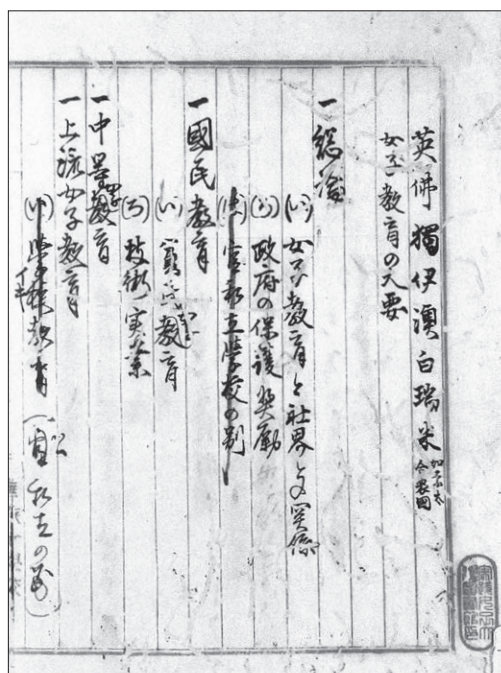 英佛獨伊澳白瑞米 加奈太 合衆國
女子教育の大要
一 総論
(い) 女子教育と社界との関係
(ろ) 政府の保護奨勵
(は) 官私立学校の別
一 國民教育
(い) 教育
(ろ) 技術 実業
一 中等教育
一 上流女子教育
(い) 学校教育 (官公私立の別)